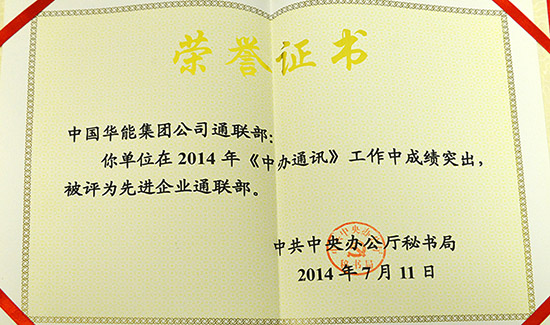 荣誉证书
中国华能集团公司通联部:
你单位在2014年《中办通讯》工作中成绩突出,
被评为先进企业通联部。
中共中央办公厅秘书局
2014年7月11日
秘书局